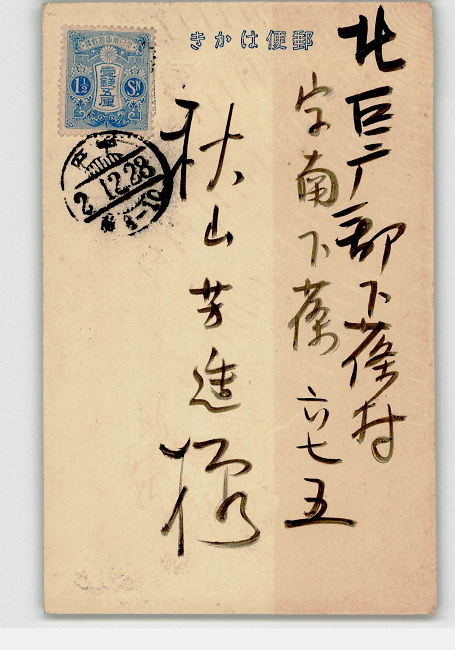 郵便はかき
北巨广郡下葆村
字南下葆 六七五
秋山芳進様
壹錢五厘
1½ Sn
2.12.28